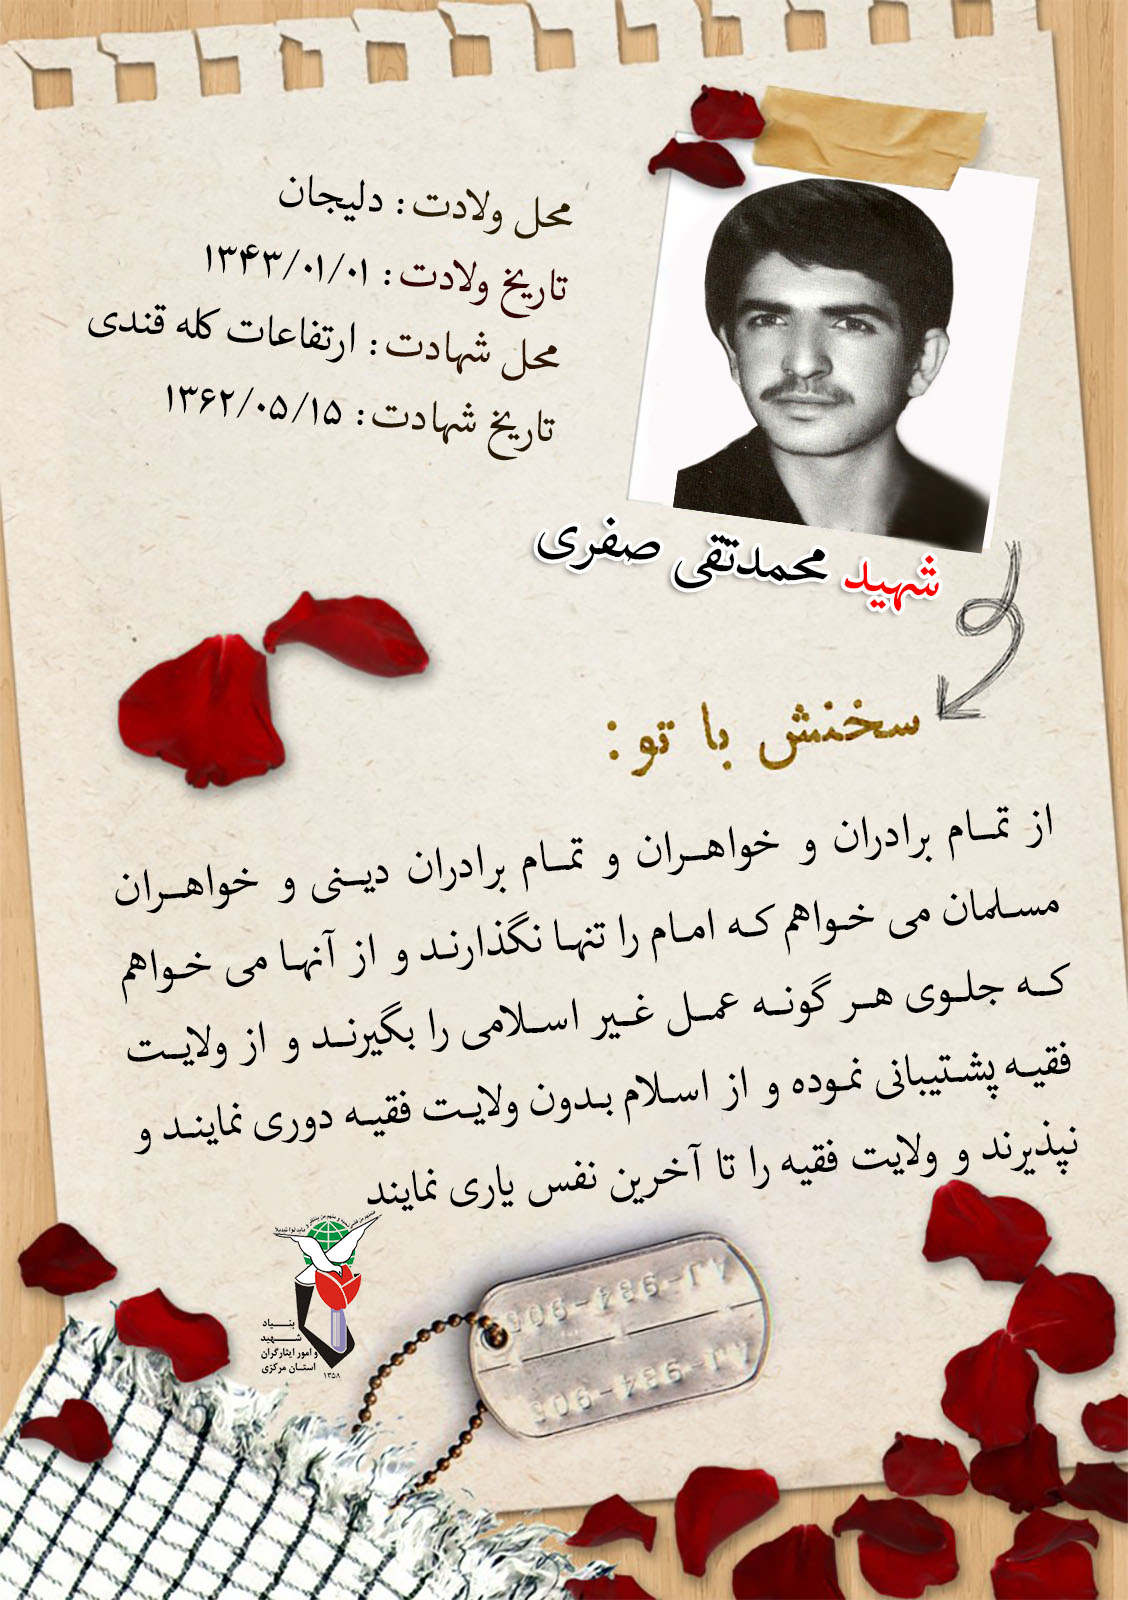 محل ولادت: دلیجان
تاریخ ولادت: ۱۳۴۳/۰۱/۰۱
محل شهادت: ارتفاعات کله قندی
تاریخ شهادت: ۱۳۶۲/۰۵/۱۵
شهید محمدتقی صفری
سخنش با تو:
از تمام برادران و خواهران و تمام برادران دینی و خواهران
مسلمان می خواهم که امام را تنها نگذارند و از آنها می خواهم
که جلوی هر گونه عمل غیر اسلامی را بگیرند و از ولایت
فقیه پشتیبانی نموده و از اسلام بدون ولایت فقیه دوری نمایند و
نپذیرند و ولایت فقیه را تا آخرین نفس یاری نمایند
بنیاد
شهید
و امور ایثارگران
استان مرکزی
۱۳۵۸